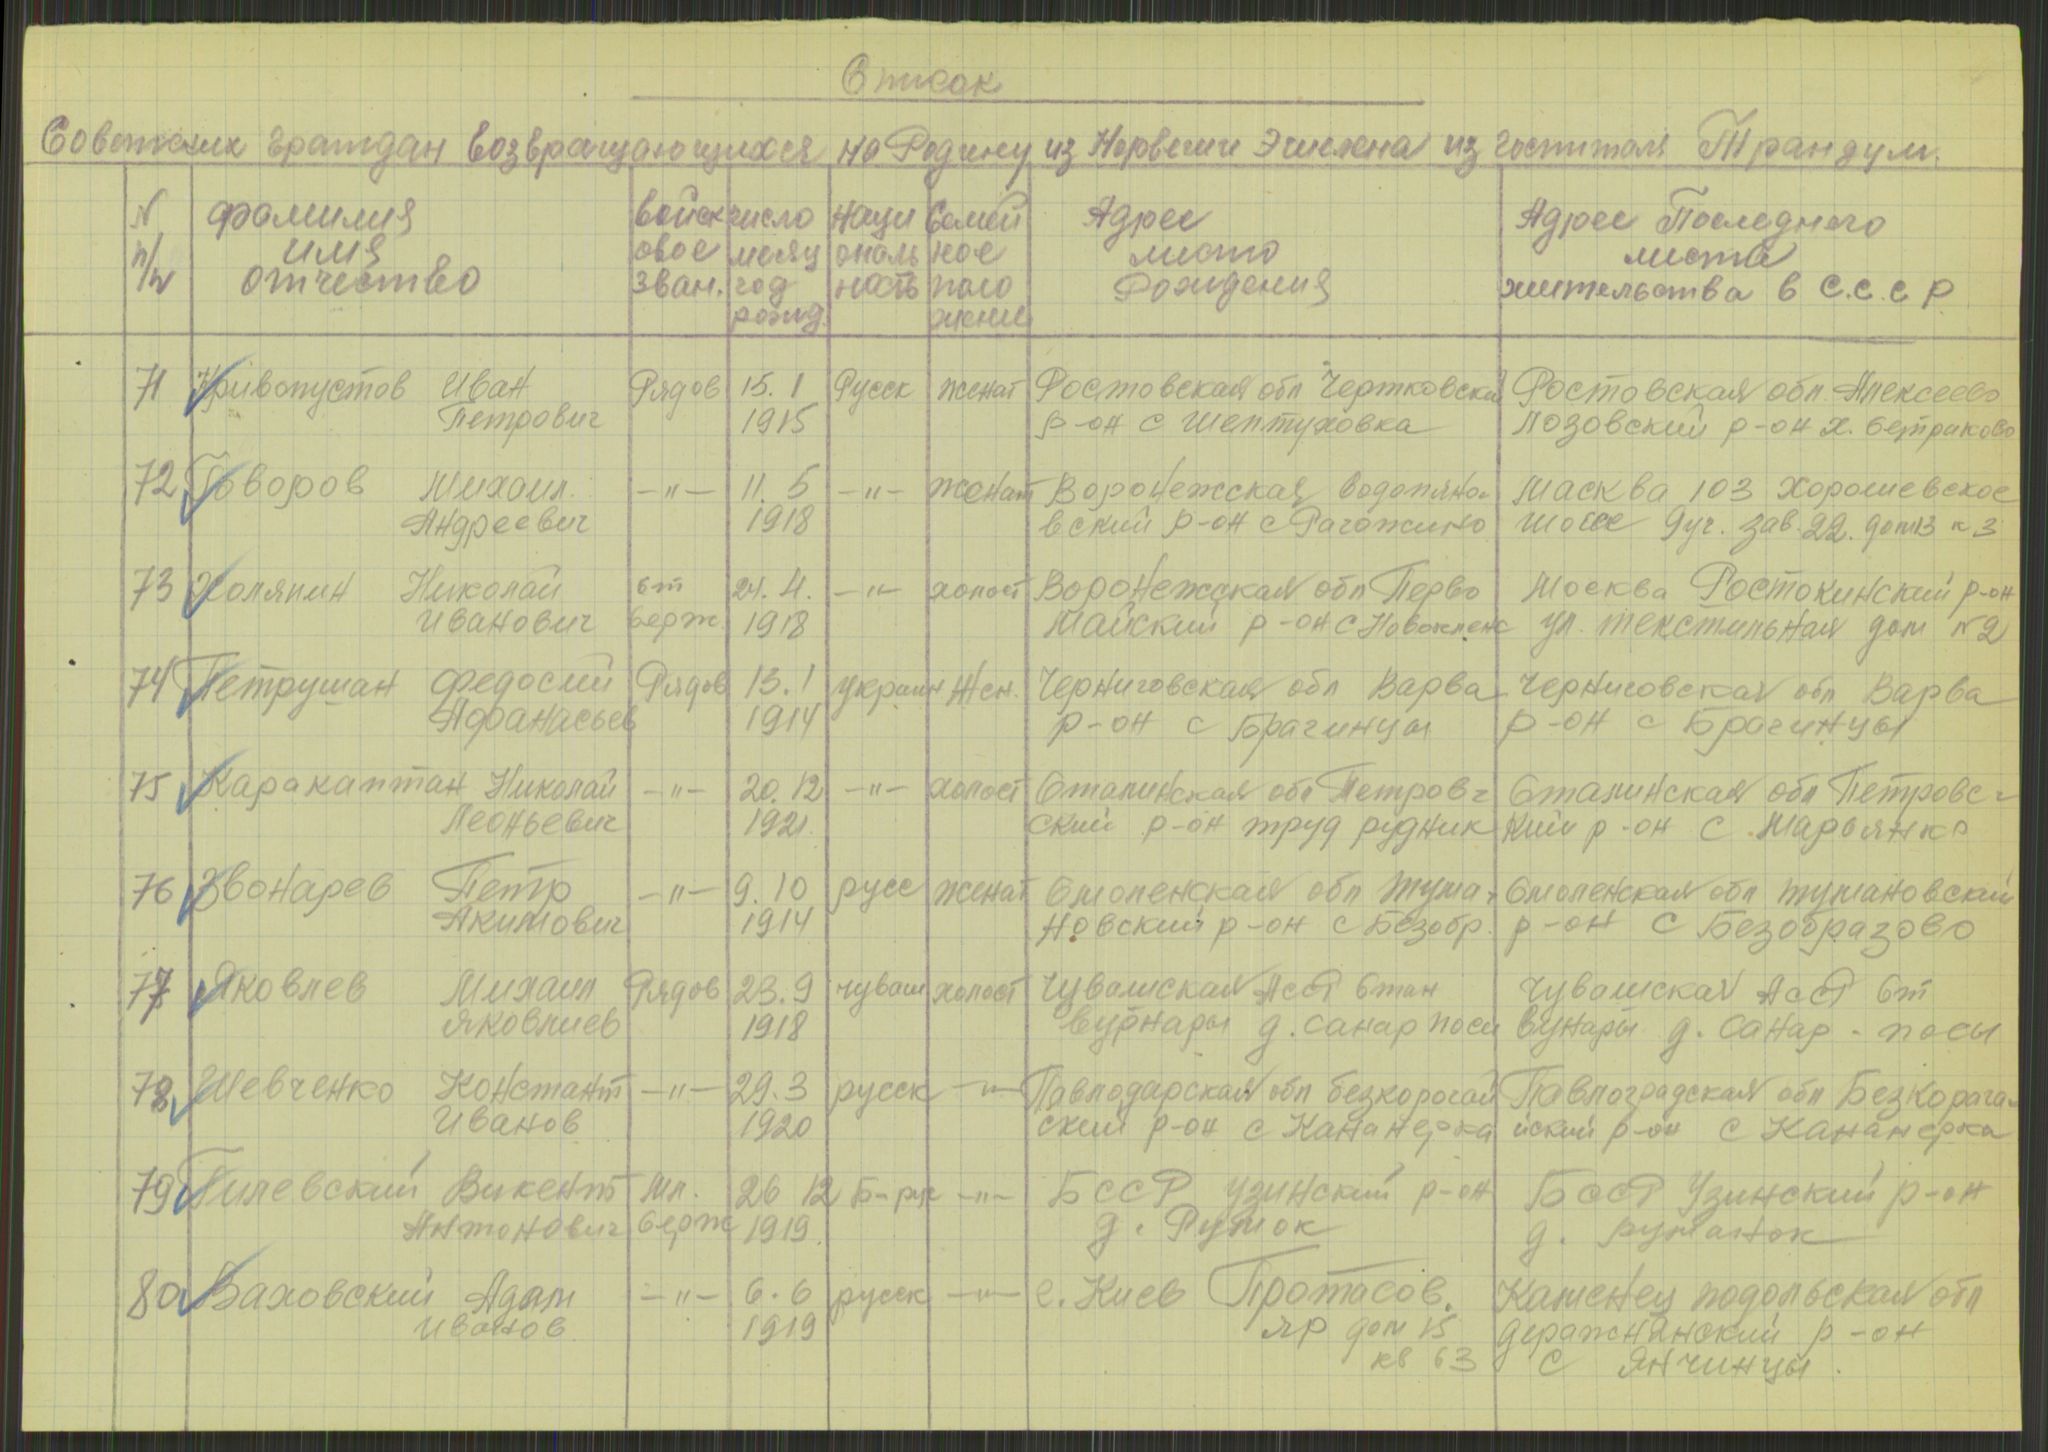 Список
Советских граждан возвращающихся на Родину из Норвегии Эшелена из госпиталя Трандум.
N п/н | фамилия имя отчество | войсковое зван. | число месяц год рожд. | национальность | Семейное поло жение | Адрес место Рождения | Адрес Последнего места жительства в С.С.С.Р
71 Кривопустов Иван Рядов 15. 1 Русск женат Ростовская обл Чертковский Ростовская обл. Алексеево
Петрович 1915 р-он с Шептуховка Лозовский р-он х.
72 Говоров Михаил -"- 11. 5 -"- женат Воронежская Водопяно- Масква 103 Хорошевское
Андреевич 1918 вский р-он с Рагожино шоссе 9уч. зав. 22. дом 13 к 3
73 Холяпин Николай ст 24. 4. -"- холост Воронежская обл Перво Москва Ростокинский р-он
Иванович серж. 1918 Майский р-он с ул. текстильная дом N2
74 Петрушан Федосий Рядов 13. 1 украин Жен. Черниговская обл Варва Черниговская обл Варва
Афанасьев 1914 р-он с Брагинцы р-он с Брагинцы
75 Каракаптан Николай -"- 20. 12 -"- холост Сталинская обл Петров- Сталинская обл Петровс-
Леоньевич 1921. ский р-он труд рудник кий р-он с Марьянко
76 Звонарев Петр -"- 9. 10 русс женат Смоленская обл Тума- Смоленская обл Тумановский
Акимович 1914 новский р-он с Безобр. р-он с Безобразово
77 Яковлев Михаил Рядов 23. 9 чуваш холост Чувашская АССР Стан Чувашская АССР Ст
Яковлиев 1918 Вурнары д. Санар поси Вунары д. Санар-посы
78 Шевченко Констант -"- 29. 3 русск -"- Павлодарская обл безкорогай Павлоградская обл Безкорага-
Иванов 1920 ский р-он с Кананерка йский р-он с Кананерка
79 Пилевский Викент Мл. 26 12 Б-рус -"- БССР Узинский р-он БССР Узинский р-он
Антонович Серж 1919. д. д.
80 Ваховский Адам -"- 6. 6 русск -"- г. Киев Протасов. Каменец подольская обл
Иванов 1919 яр дом 15 деражнянский р-он
кв 63 с Янчинцы.